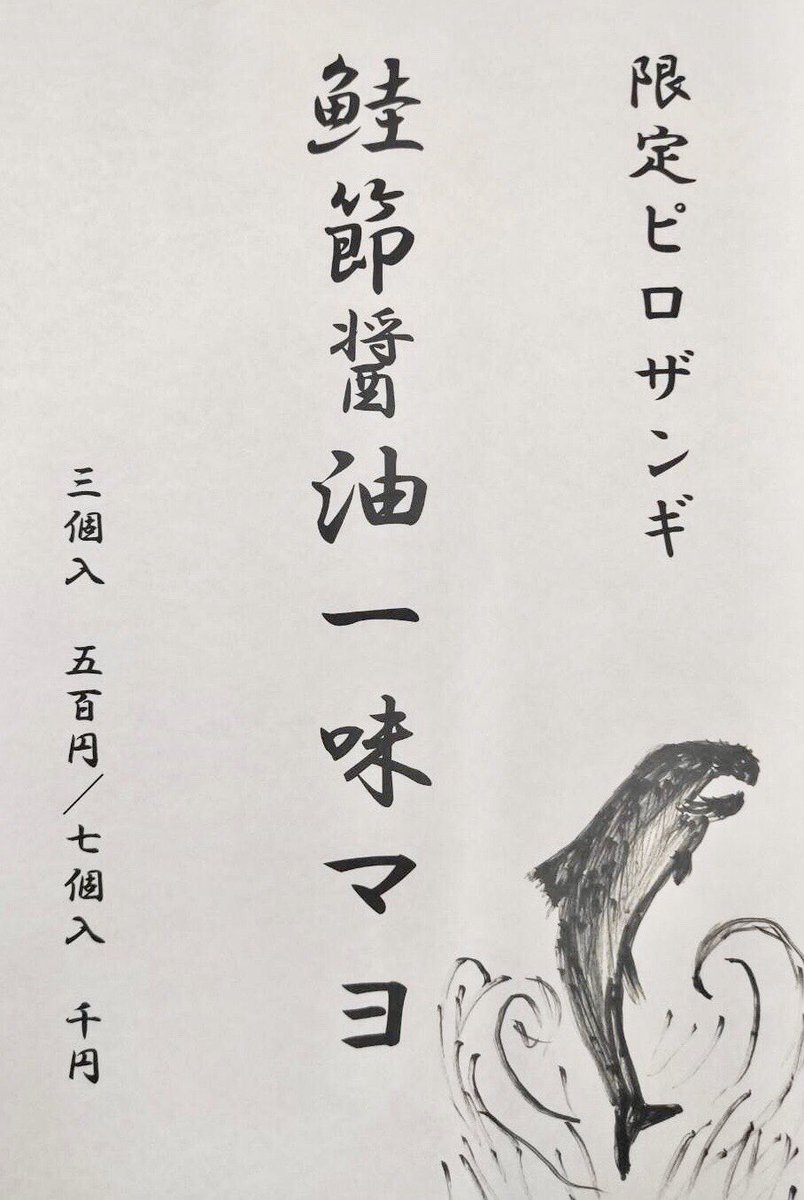 限定ピロザンギ
鮭節醤油一味マヨ
三個入 五百円/七個入 千円